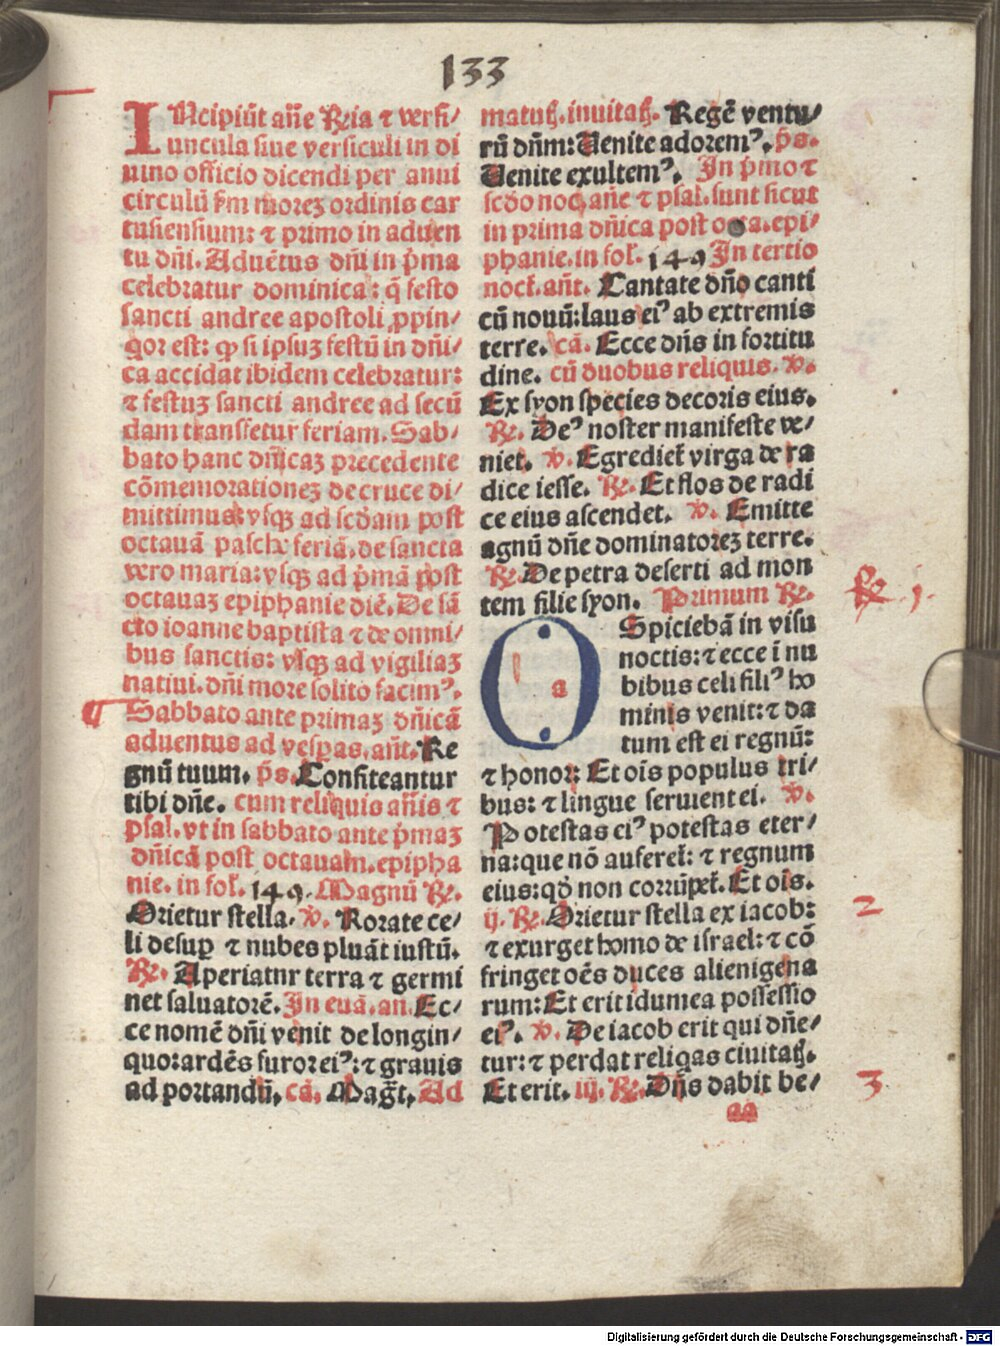 133
INcipiūt añe Rꝛia ⁊ versi/
uncula siue versiculi in di
uino officio dicendi per anni
circulū ẜm moreꝫ ordinis car
tusiensium: ⁊ primo in aduen
tu dñi. Aduētus dñi in p̄ma
celebratur dominica: q̄ festo
sancti andree apostoli ꝓpin/
qor est: ꝙ si ipsuꝫ festū in dñi/
ca accidat ibidem celebratur:
⁊ festuꝫ sancti andree ad secū
dam transfetur feriam. Sab/
bato hanc dñicaꝫ precedente
cōmemorationeꝫ de cruce di/
mittimus: vsqꝫ ad scd̄am post
octauā pasche feriā. de sancta
vero maria: vsqꝫ ad p̄mā post
octauaꝫ epiphanie diē. De sā
cto ioanne baptista ⁊ de omni/
bus sanctis: vsqꝫ ad vigiliaꝫ
natiui. dñi more solito facimꝰ.
¶ Sabbato ante primaꝫ dñicā
aduentus ad vesꝑas. añt. Re
gnū tuum. p̄s. Confiteantur
tibi dñe. cum reliquis añis ⁊
psal. vt in sabbato ante p̄maꝫ
dñicā post octauam. epipha
nie. in fol. 149. Magnū ℟.
Orietur stella. ℣. Rorate ce/
li desuꝑ ⁊ nubes pluāt iustū.
℟. Aperiatnr terra ⁊ germi
net saluatorē. In euā. an. Ec/
ce nomē dñi venit de longin/
quo: ardēs furor eiꝰ: ⁊ grauis
ad portandū. cā. Mag̃t. Ad
matuť. inuitať. Regē ventu/
rū dñm: Venite adoremꝰ. p̄s.
Venite exultemꝰ. In p̄mo ⁊
scd̄o noc. añe ⁊ psal. sunt sicut
in prima dñica post octa. epi/
phanie. in fol. 149 In tertio
noct. añt. Cantate dño canti
cū nouū: laus eiꝰ ab extremis
terre. cā. Ecce dñs in fortitu
dine. cū duobus reliquis. ℣.
Ex syon species decoris eius.
℟. Deꝰ noster manifeste ve/
niet. ℣. Egredieť virga de ra
dice iesse. ℟. Et flos de radi
ce eius ascendet. ℣. Emitte
agnū dñe dominatoreꝫ terre.
℟. De petra deserti ad mon
tem filie syon. Primum ℟.
℟ 1.
O a Spiciebā in visu
noctis: ⁊ ecce ī nu
bibus celi filiꝰ ho
minis venit: ⁊ da
tum est ei regnū:
⁊ honor: Et oīs populus tri/
bus: ⁊ lingue seruient ei. ℣.
Potestas eiꝰ potestas eter/
na: que nō auferet: ⁊ regnum
eius: qd̄ non corrūpet. Et oīs.
ij. ℟. Orietur stella ex iacob:
2
⁊ exurget homo de israel: ⁊ cō
fringet oēs duces alienigena
rum: Et erit idumea possessio
eiꝰ. ℣. De iacob erit qui dñe/
tur: ⁊ perdat reliqas ciuitať.
Et erit. iij. ℟. Dñs dabit be/
3
aa
Digitalisierung gefördert durch die Deutsche Forschungsgemeinschaft - DFG